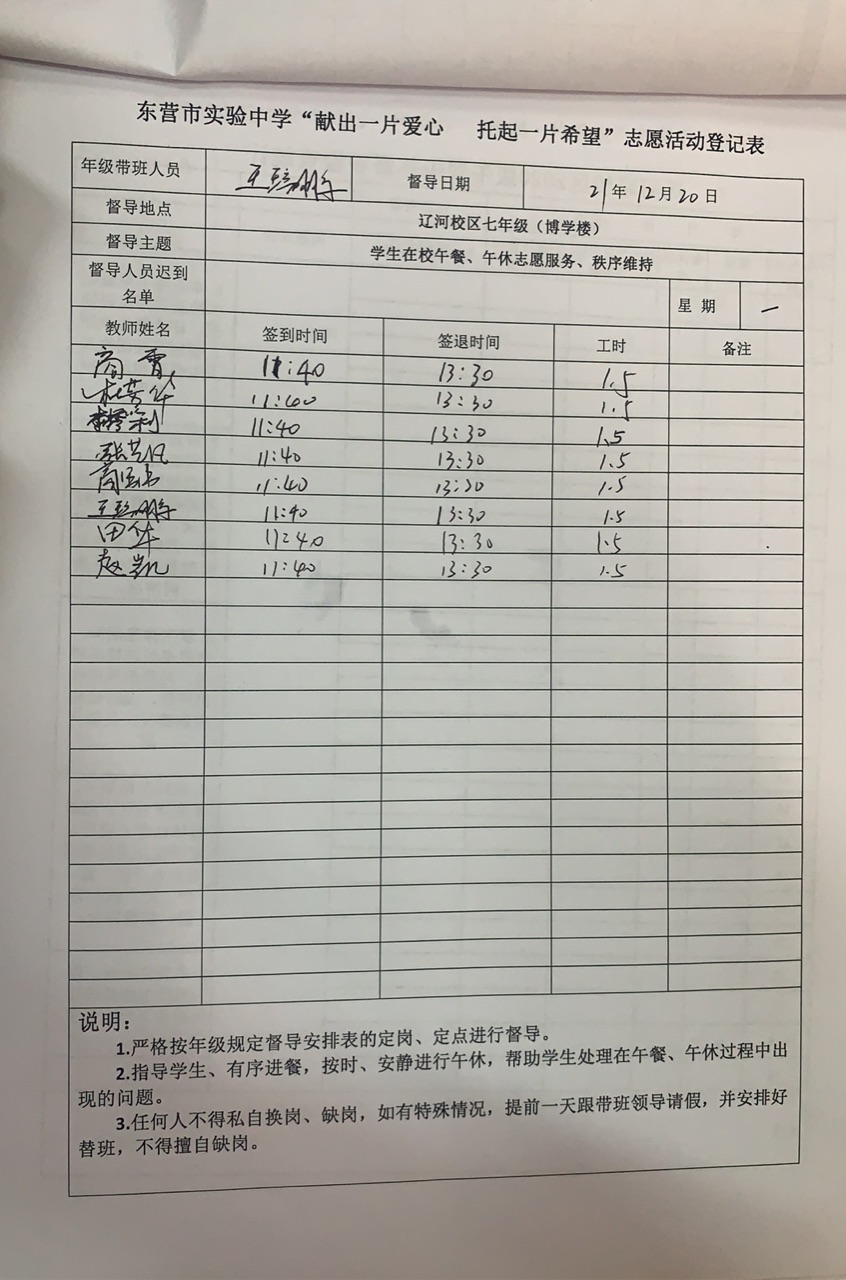 东营市实验中学“献出一片爱心 托起一片希望”志愿活动登记表
年级带班人员 督导日期 21年12月20日
督导地点 辽河校区七年级（博学楼）
督导主题 学生在校午餐、午休志愿服务、秩序维持
督导人员迟到名单 星期 一
教师姓名 签到时间 签退时间 工时 备注
商雪 11:40 13:30 1.5
11:40 13:30 1.5
11:40 13:30 1.5
11:40 13:30 1.5
11:40 13:30 1.5
11:40 13:30 1.5
田华 11:40 13:30 1.5
赵凯 11:40 13:30 1.5
说明：
1.严格按年级规定督导安排表的定岗、定点进行督导。
2.指导学生、有序进餐，按时、安静进行午休，帮助学生处理在午餐、午休过程中出
现的问题。
3.任何人不得私自换岗、缺岗，如有特殊情况，提前一天跟带班领导请假，并安排好
替班，不得擅自缺岗。